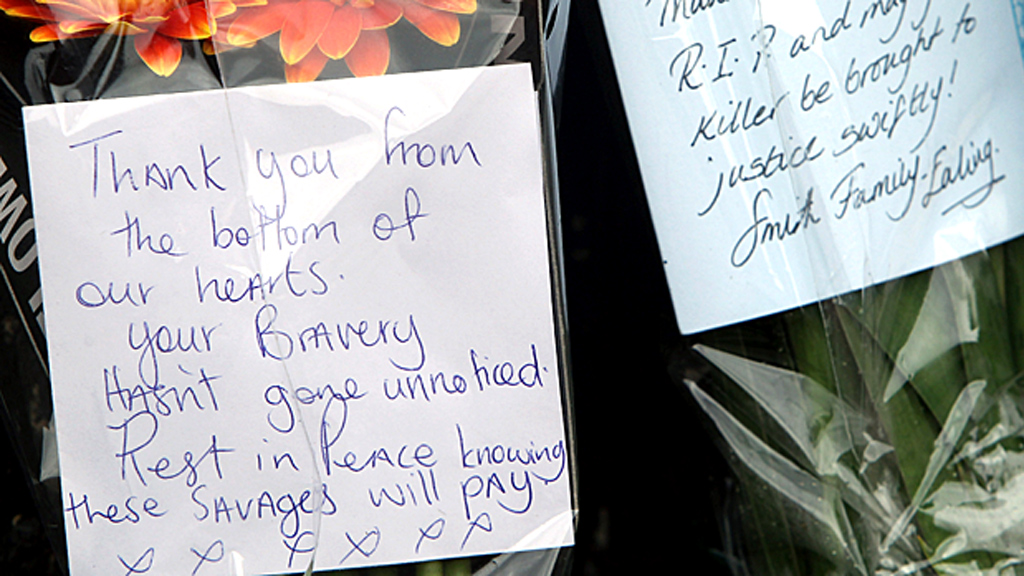 Thank you from
the bottom of
our hearts.
Your Bravery
Hasn't gone unnoticed.
Rest in Peace knowing
these SAVAGES will pAy
x x x x x x
R.I.P and may
killer be brought to
justice swiftly!
Smith Family. Ealing.